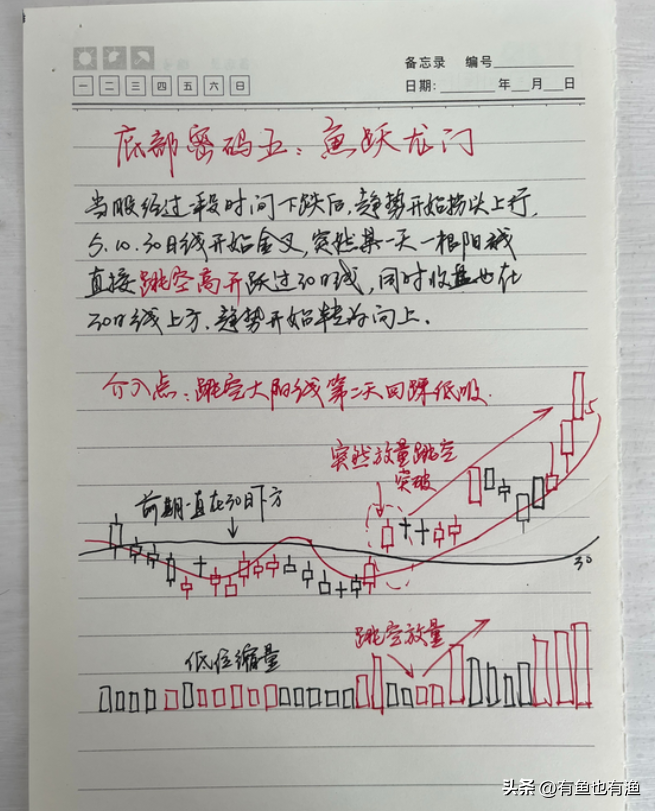 备忘录 编号
一 二 三 四 五 六 日
日期: 年 月 日
底部密码五:鱼跃龙门
当股经过一段时间下跌后,趋势开始拐头上行,
5.10.30日线开始金叉,突然某一天一根阳线
直接跳空高开跃过30日线,同时收盘也在
30日线上方.趋势开始转为向上.
介入点:跳空大阳线第二天回踩低吸.
突然放量跳空
突破
前期一直在30日下方
5
30
跳空放量
低位缩量
头条 @有鱼也有渔